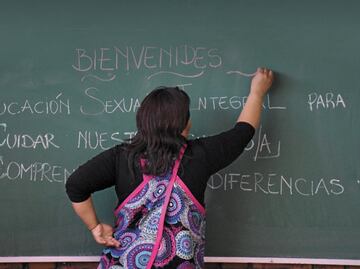 BIENVENIDES
EDUCACIÓN SEXUAL INTEGRAL PARA
CUIDAR NUES
COMPREN DIFERENCIAS Y